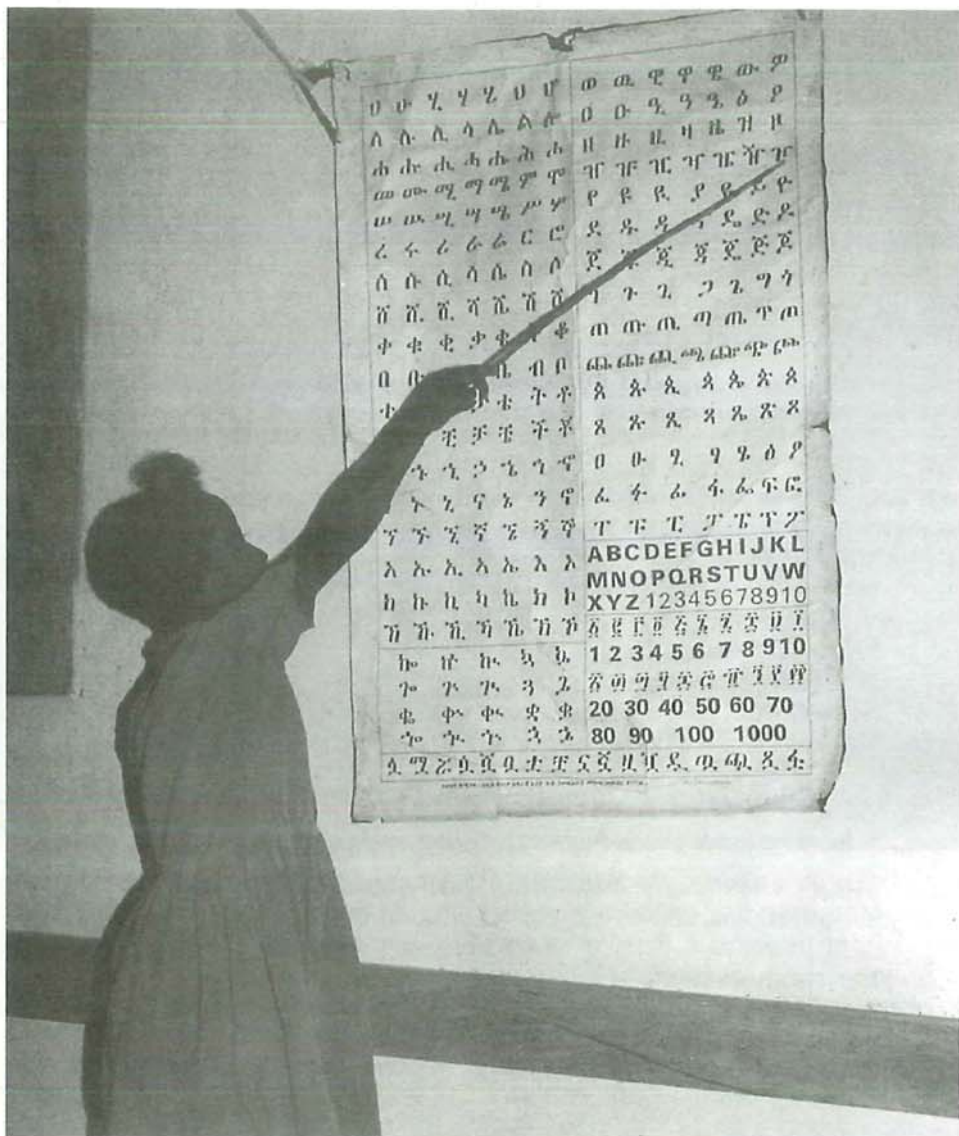 ሀ ሁ ሂ ሃ ሄ ህ ሆ
ለ ሉ ሊ ላ ሌ ል ሎ
ሐ ሑ ሒ ሓ ሔ ሕ ሖ
መ ሙ ሚ ማ ሜ ም ሞ
ሠ ሡ ሢ ሣ ሤ ሥ ሦ
ረ ሩ ሪ ራ ሬ ር ሮ
ሰ ሱ ሲ ሳ ሴ ስ ሶ
ሸ ሹ ሺ ሻ ሼ ሽ ሾ
ቀ ቁ ቂ ቃ ቄ ቆ
በ ቡ ቤ ብ ቦ
ተ ታ ቴ ት ቶ
ቺ ቻ ቼ ች ቾ
ኁ ኂ ኃ ኄ ኅ ኆ
ኑ ኒ ና ኔ ን ኖ
ኘ ኙ ኚ ኛ ኜ ኝ ኞ
አ ኡ ኢ ኣ ኤ እ ኦ
ከ ኩ ኪ ካ ኬ ክ ኮ
ኸ ኹ ኺ ኻ ኼ ኽ ኾ
ኰ ኵ ኲ ኳ ኴ
ጐ ጕ ጒ ጓ ጔ
ቈ ቍ ቊ ቋ ቌ
ኈ ኍ ኊ ኋ ኌ
ወ ዉ ዊ ዋ ዌ ው ዎ
ዐ ዑ ዒ ዓ ዔ ዕ ዖ
ዘ ዙ ዚ ዛ ዜ ዝ ዞ
ዠ ዡ ዢ ዣ ዤ ዥ ዦ
የ ዩ ዪ ያ ዬ ይ ዮ
ደ ዱ ዲ ዳ ዴ ድ ዶ
ጀ ጁ ጂ ጃ ጄ ጅ ጆ
ገ ጉ ጊ ጋ ጌ ግ ጎ
ጠ ጡ ጢ ጣ ጤ ጥ ጦ
ጨ ጩ ጪ ጫ ጬ ጭ ጮ
ጰ ጱ ጲ ጳ ጴ ጵ ጶ
ጸ ጹ ጺ ጻ ጼ ጽ ጾ
ፀ ፁ ፂ ፃ ፄ ፅ ፆ
ፈ ፉ ፊ ፋ ፌ ፍ ፎ
ፐ ፑ ፒ ፓ ፔ ፕ ፖ
ABCDEFGHIJKL
MNOPQRSTUVW
XYZ 12345678910
፩ ፪ ፫ ፬ ፭ ፮ ፯ ፰ ፱ ፲
1 2 3 4 5 6 7 8 9 10
፳ ፴ ፵ ፶ ፷ ፸ ፹ ፺ ፻ ፲፻
20 30 40 50 60 70
80 90 100 1000
ሏ ሟ ሯ ሷ ሿ ቧ ቷ ቿ ኗ ኟ ዟ ዧ ዷ ጧ ጯ ጿ ፏ